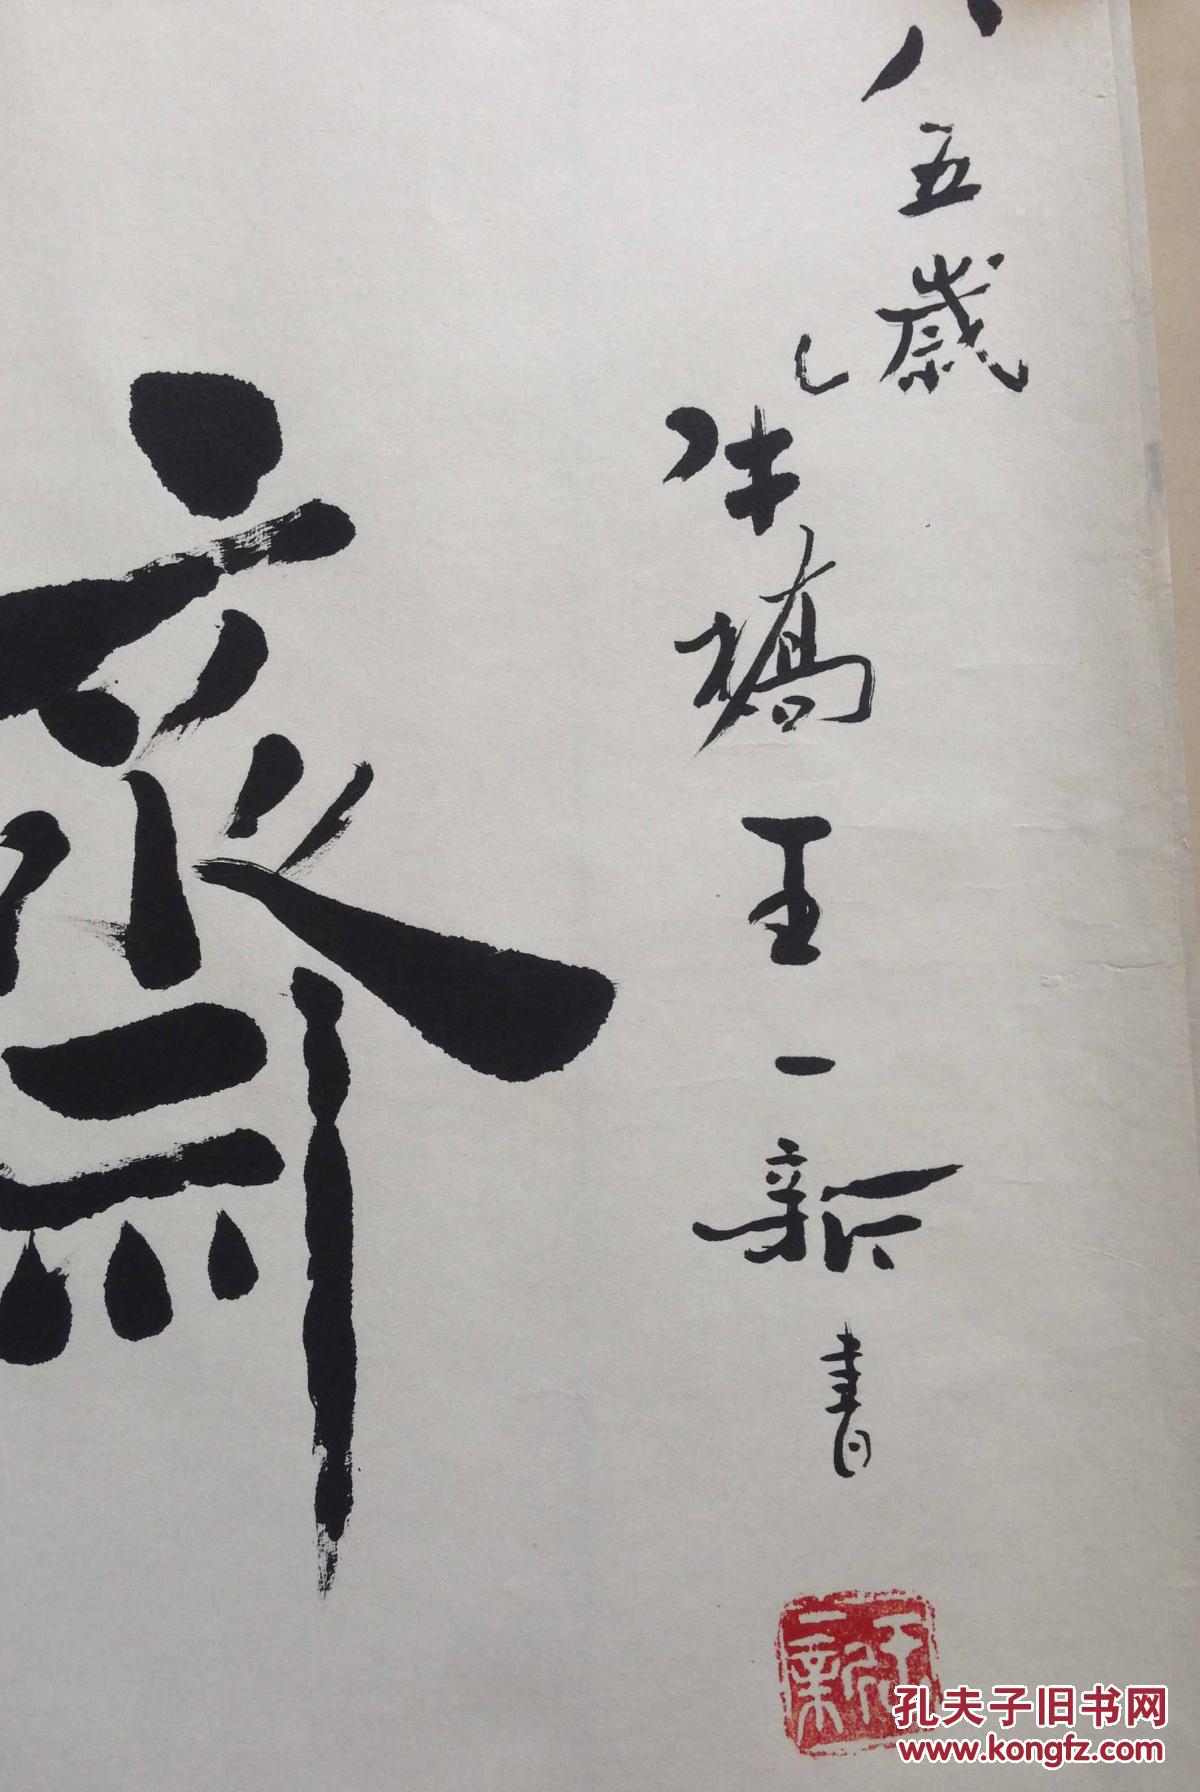 齋
八五歲
橋王一新書
王一新
孔夫子旧书网
www.kongfz.com